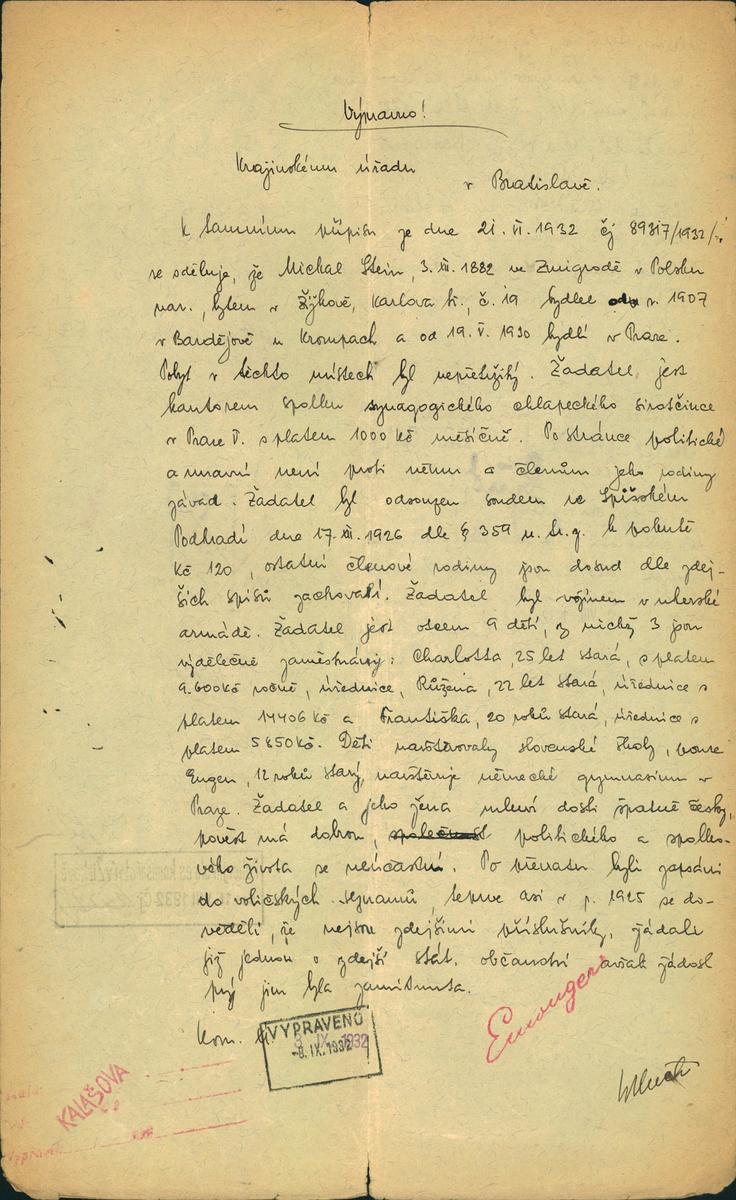 Výpravno!
Krajinskému úřadu
v Bratislavě.
K tamnímu přípisu ze dne 21. VI. 1932 čj 89317/1932/
se sděluje, že Michal Stein, 3. III. 1882 ve Zmigrodě v Polsku
nar., bytem v Žižkově, Karlova tř., č. 19 bydlel od r. 1907
v Bardějově u Krompach a od 19. V. 1930 bydlí v Praze.
Pobyt v těchto místech byl nepřetržitý. Žadatel jest
kantorem spolku synagogického chlapeckého sirotčince
v Praze V. s platem 1000 Kč měsíčně. Po stránce politické
a mravní není proti němu a členům jeho rodiny
závad. Žadatel byl odsouzen soudem ve Spišském
Podhradí dne 17. III. 1926 dle § 359 u. tr. z. k pokutě
Kč 120, ostatní členové rodiny jsou dosud dle zdej-
ších spisů zachovalí. Žadatel byl vojínem v uherské
armádě. Žadatel jest otcem 9 dětí, z nichž 3 jsou
výdělečně zaměstnány: Charlotta, 25 let stará, s platem
9.600 Kč ročně, úřednice, Růžena, 22 let stará, úřednice s
platem 14406 Kč a Františka, 20 roků stará, úřednice s
platem 5850 Kč. Děti navštěvovaly slovenské školy, pouze
Eugen, 12 roků starý, navštěvuje německé gymnasium v
Praze. Žadatel a jeho žena mluví dosti špatně česky,
pověst má dobrou, společnost politického a spolko-
vého života se neúčastní. Po převratu byli zapsáni
do voličských seznamů, teprve asi v r. 1925 se do-
věděli, že nejsou zdejšími příslušníky, žádali
již jednou o zdejší stát. občanství avšak žádost
prý jim byla zamítnuta.
Kom.
VYPRAVENO
-8. IX. 1932
KALAŠOVA